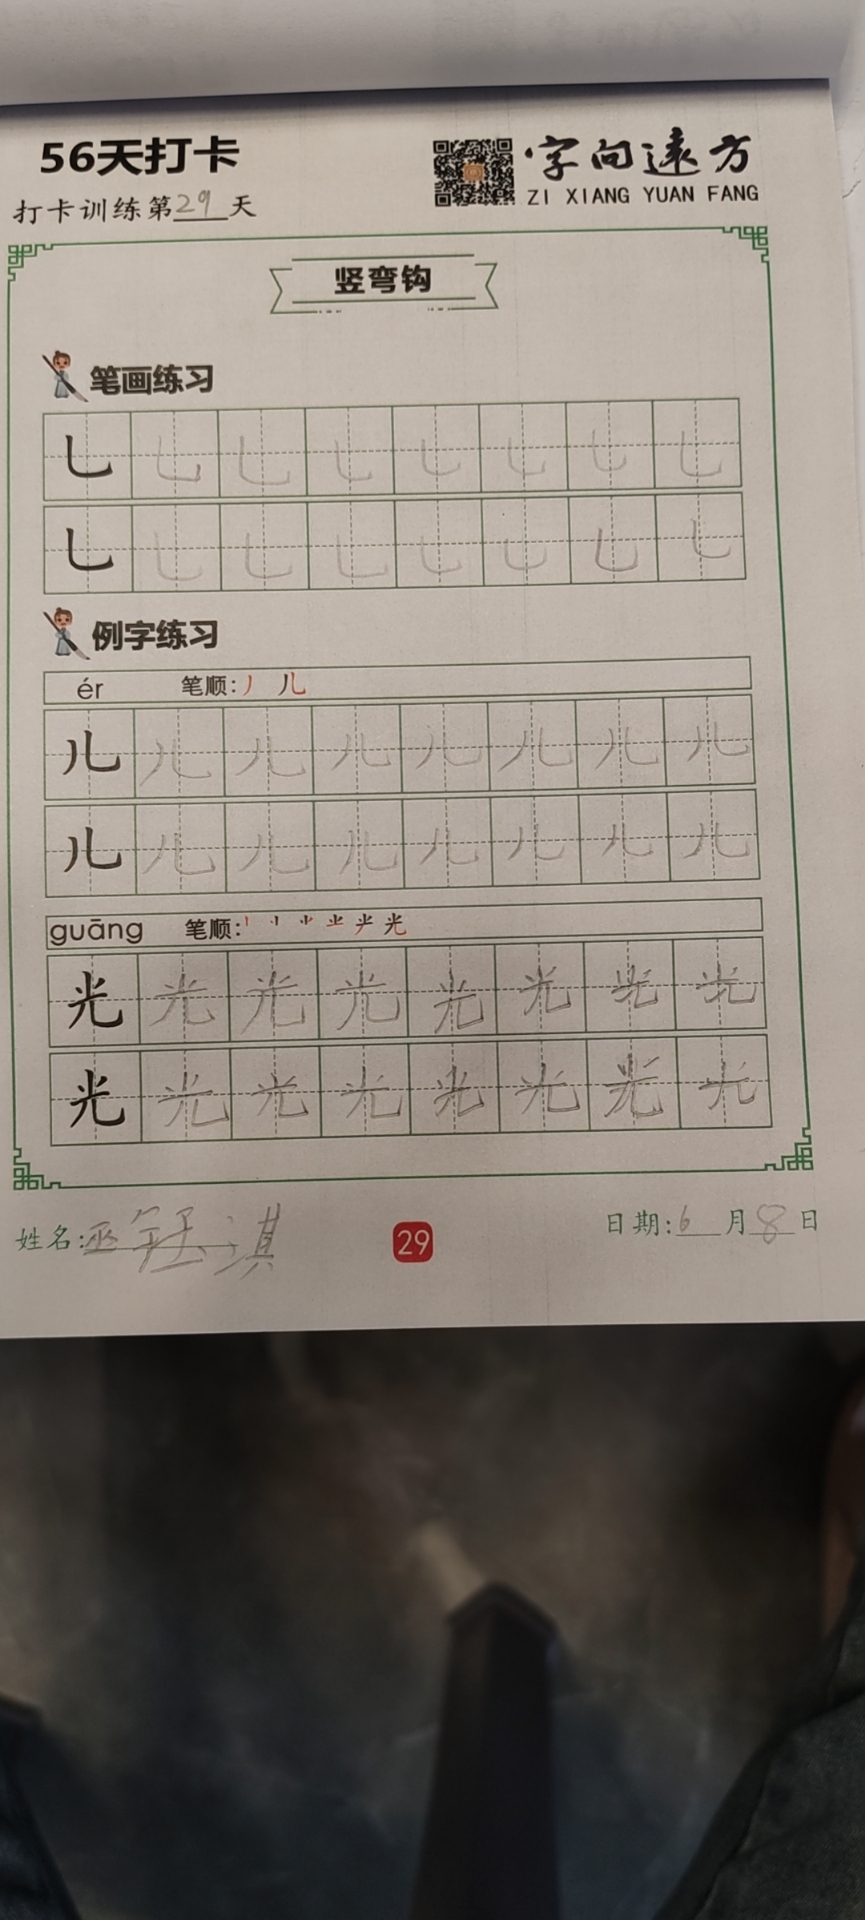 56天打卡
字向远方
ZI XIANG YUAN FANG
打卡训练第29天
竖弯钩
笔画练习
乚 乚 乚 乚 乚 乚 乚 乚
乚 乚 乚 乚 乚 乚 乚 乚
例字练习
ér 笔顺:丿 儿
儿 儿 儿 儿 儿 儿 儿 儿
儿 儿 儿 儿 儿 儿 儿 儿
guāng 笔顺:
光 光 光 光 光 光 光 光
光 光 光 光 光 光 光 光
姓名:巫 淇
29
日期:6月8日